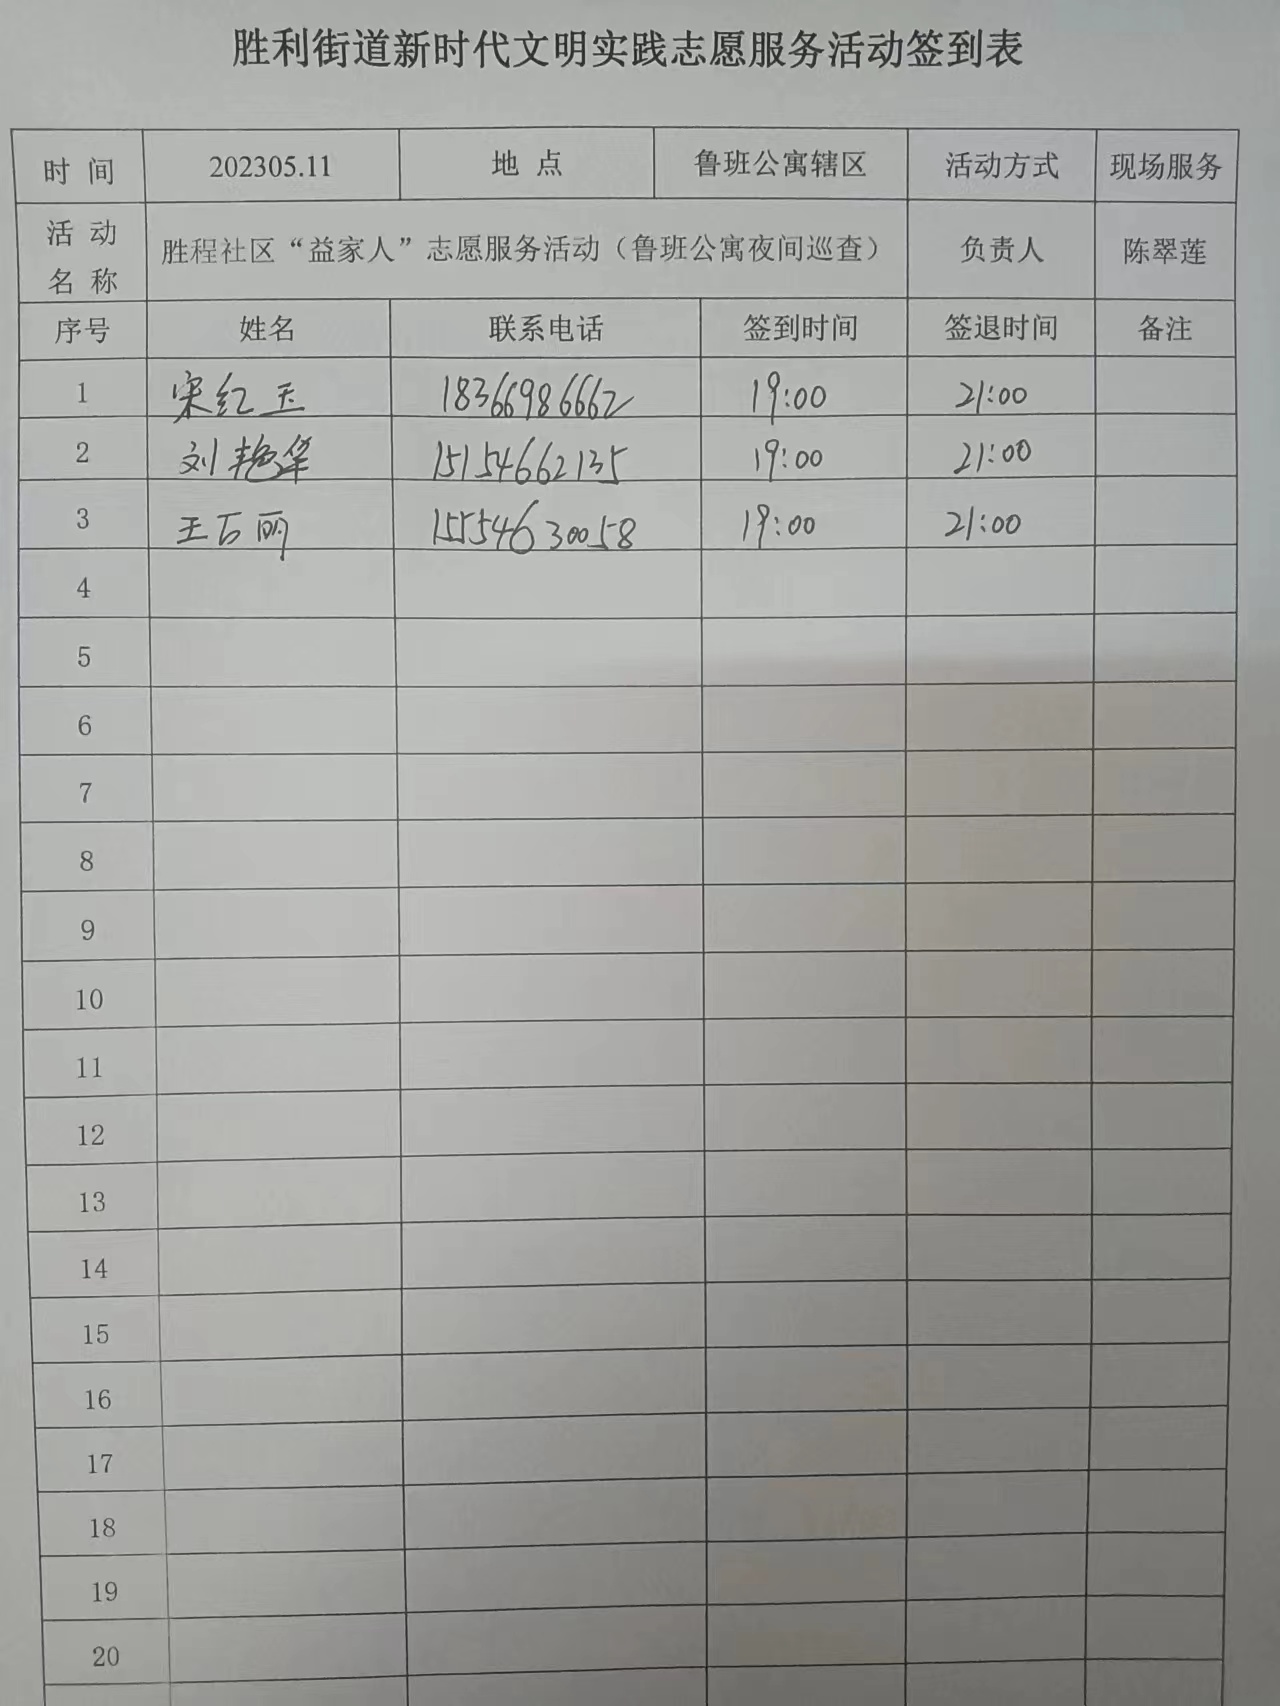 胜利街道新时代文明实践志愿服务活动签到表
时 间 202305.11 地 点 鲁班公寓辖区 活动方式 现场服务
活 动
名 称 胜程社区“益家人”志愿服务活动（鲁班公寓夜间巡查） 负责人 陈翠莲
序号 姓名 联系电话 签到时间 签退时间 备注
1 宋红玉 18366986662 19:00 21:00
2 刘艳华 15154662135 19:00 21:00
3 王石丽 15554630058 19:00 21:00
4
5
6
7
8
9
10
11
12
13
14
15
16
17
18
19
20